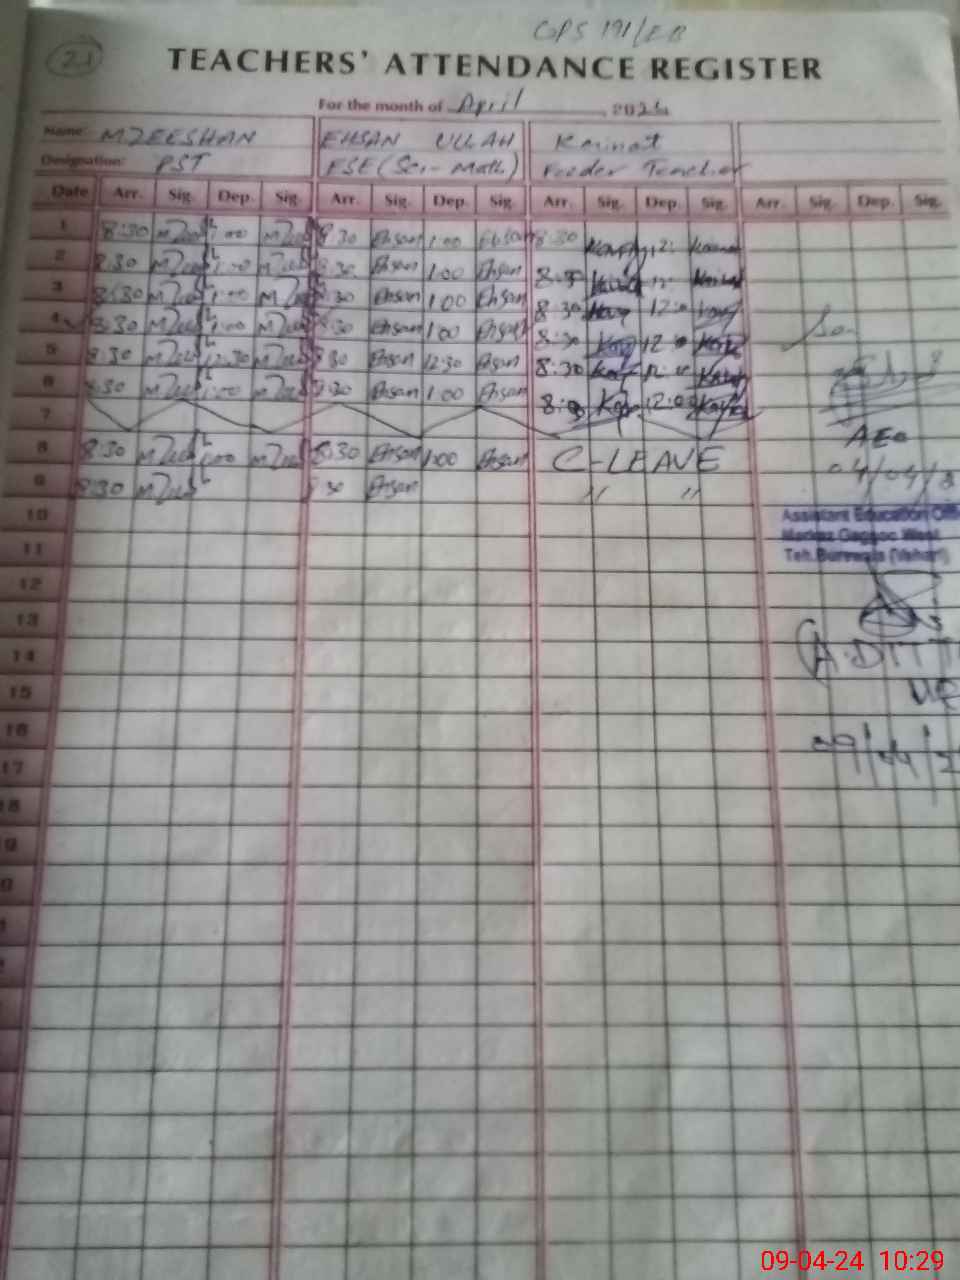 GPS 191/EB
21
TEACHERS' ATTENDANCE REGISTER
For the month of April, 2024
Name: M ZEESHAN EHSAN ULLAH Kainat
Designation: PST ESE (Sci-Math) Feeder Teacher
Date Arr. Sig. Dep. Sig. Arr. Sig. Dep. Sig. Arr. Sig. Dep. Sig. Arr. Sig. Dep. Sig.
1 8:30 MZee 1:00 MZee 8:30 Ehsan 1:00 Ehsan 8:30 12:
2 8:30 MZee 1:00 MZee 8:30 Ehsan 1:00 Ehsan 8:30 12:
3 8:30 MZee 1:00 MZee 8:30 Ehsan 1:00 Ehsan 8:30 12:00
4 8:30 MZee 1:00 MZee 8:30 Ehsan 1:00 Ehsan 8:30 12:00
5 8:30 MZee 12:30 MZee 8:30 Ehsan 12:30 Ehsan 8:30 12:00
6 8:30 MZee 1:00 8:30 Ehsan 1:00 Ehsan 8:30 12:00
7
8 8:30 MZee 1:00 MZee 8:30 Ehsan 1:00 Ehsan C-LEAVE
9 8:30 MZee 8:30 Ehsan " "
AEO
04/04/
10 Assistant Education Off
11 Markaz Gaggoo West
Teh. Burewala (Vehari)
12
13
14 A. DITT
15
16
17 09/04/2
18
9
0
1
09-04-24 10:29